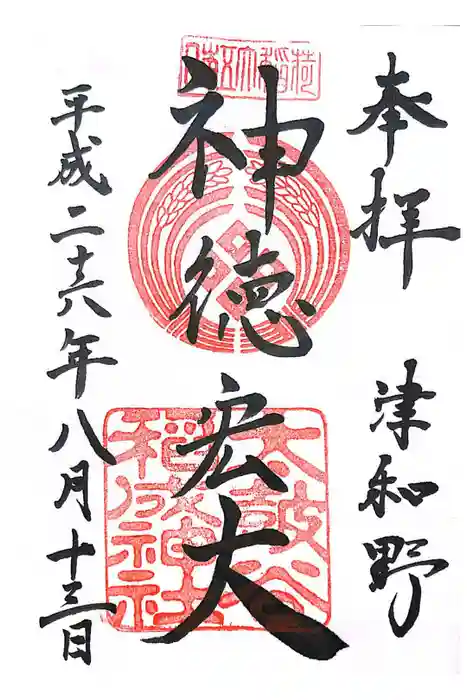 奉拝
津和野
日本五大稲荷
神徳宏大
太皷谷
稲成神社
平成二十六年八月十三日